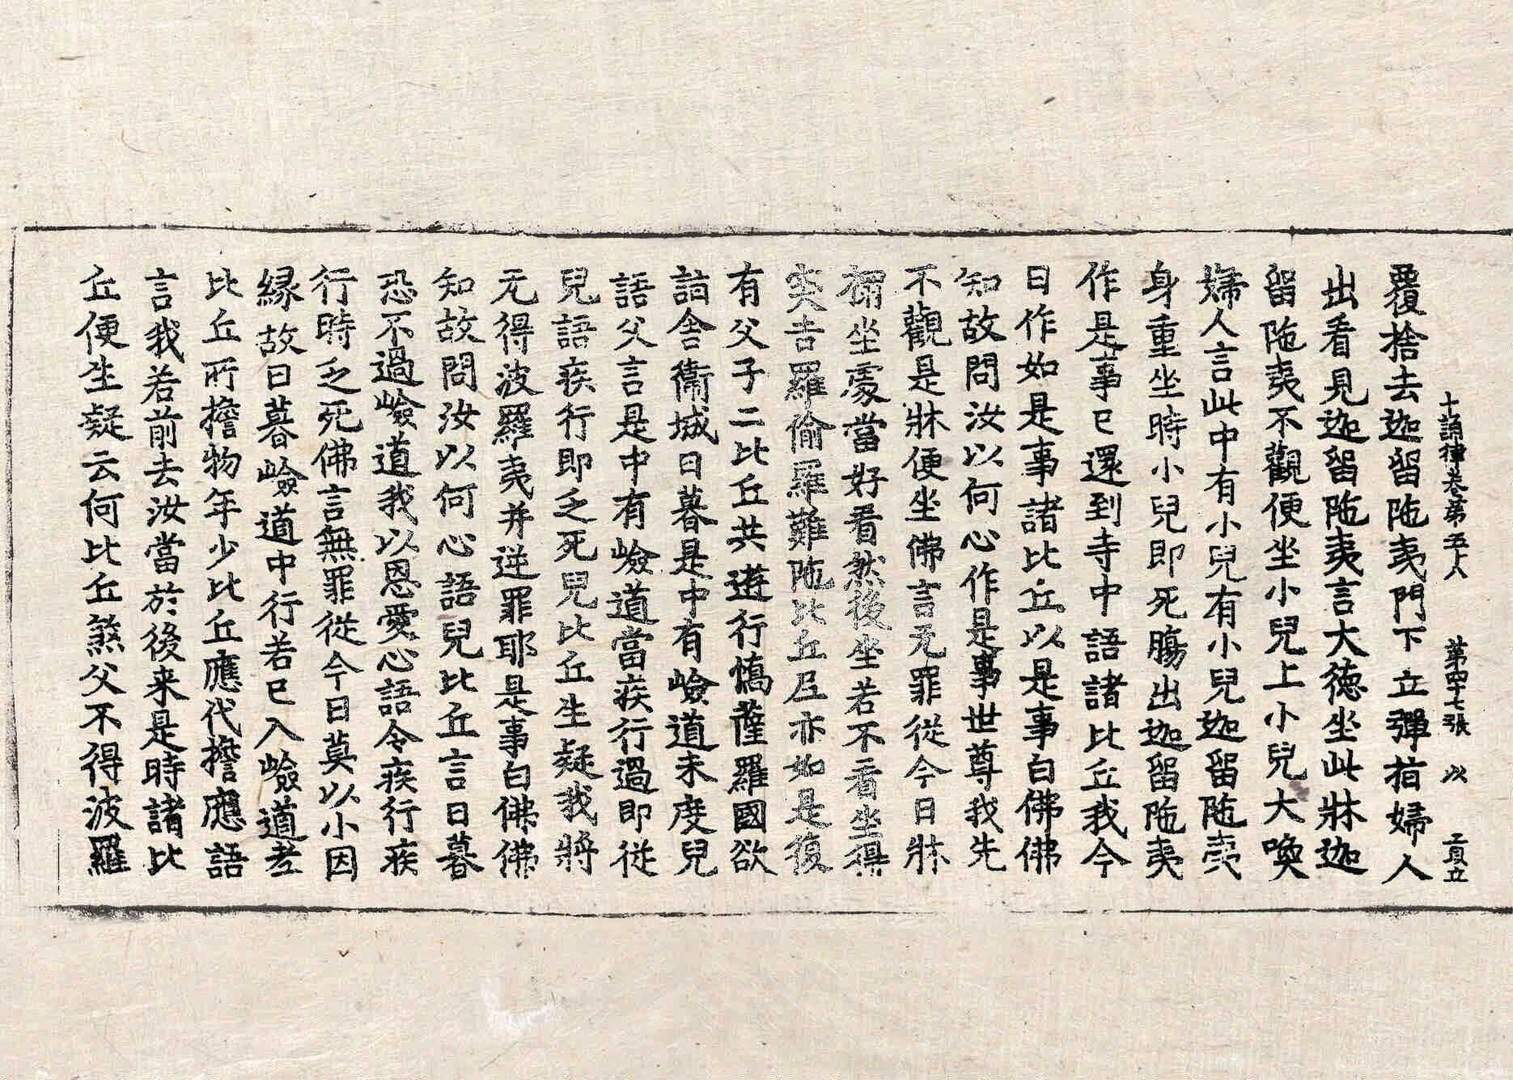 十誦律卷第五八　第四十七張　以　
覆捨去迦留陁夷門下立彈指婦人
出看見迦留陁夷言大德坐此牀迦
留陁夷不觀便坐小兒上小兒大喚
婦人言此中有小兒有小兒迦留陁夷
身重坐時小兒即死膓出迦留陁夷
作是事已還到寺中語諸比丘我今
日作如是事諸比丘以是事白佛佛
知故問汝以何心作是事世尊我先
不觀是牀便坐佛言无罪從今日牀
榻坐處當好看然後坐若不看坐得
突吉羅偷羅難陁比丘尼亦如是復
有父子二比丘共遊行憍薩羅國欲
詣舍衞城日暮是中有嶮道未度兒
語父言是中有嶮道當疾行過即從
兒語疾行即乏死兒比丘生疑我將
无得波羅夷并逆罪耶是事白佛佛
知故問汝以何心語兒比丘言日暮
恐不過嶮道我以恩愛心語令疾行疾
行時乏死佛言無罪從今日莫以小因
緣故日暮嶮道中行若已入嶮道老
比丘所擔物年少比丘應代擔應語
言我若前去汝當於後来是時諸比
丘便生疑云何比丘煞父不得波羅